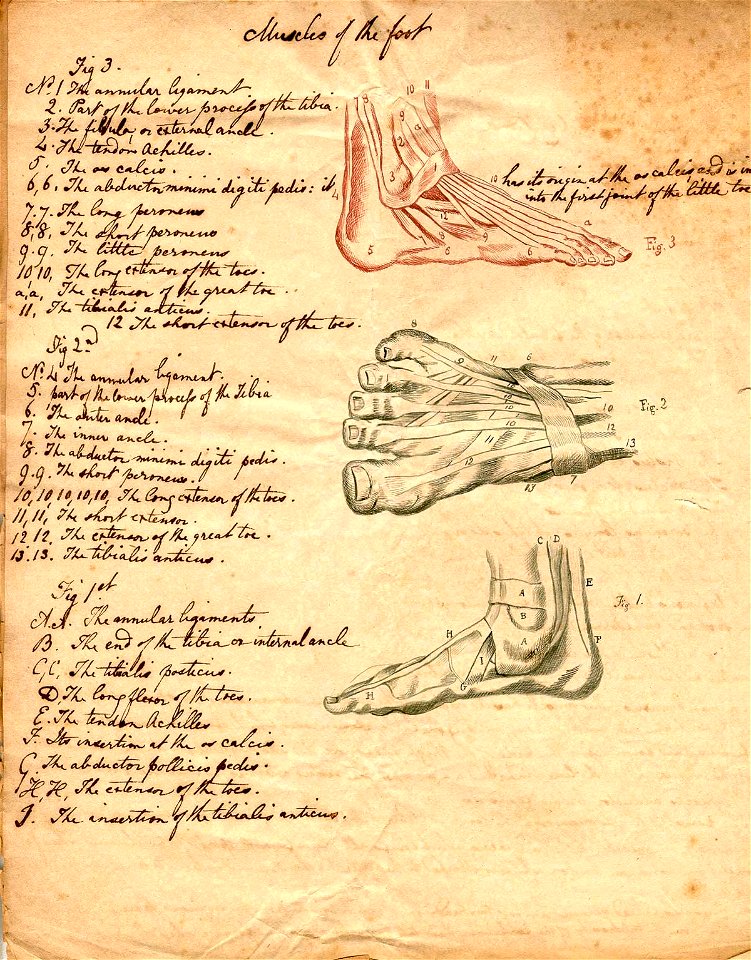 Muscles of the foot
Fig 3.
No. 1 The annular ligament.
2. Part of the lower process of the tibia.
3. The fibula, or external ancle.
4. The tendon Achilles.
5. The os calcis.
6, 6. The abductor minimi digiti pedis: it,
has its origin at the os calcis, and is in
into the first joint of the little toe
7. 7. The long peroneus
8, 8, The short peroneus
9. 9. The little peroneus
10 10, The long extensor of the toes.
a, a, The extensor of the great toe
11, The tibialis anticus.
12 The short extensor of the toes.
4 8 10 11 9 2 a 3 10 12 7 8 9 5 6 6 a
Fig. 3
Fig 2d
No. 4 The annular ligament.
5. part of the lower process of the Tibia
6. The outer ancle.
7. The inner ancle.
8. The abductor minimi digiti pedis.
9. 9. The short peroneus.
10, 10, 10, 10, 10, The long extensor of the toes.
11, 11, The short extensor.
12 12. The extensor of the great toe.
13. 13. The tibialis anticus.
8 9 11 6 10 10 10 11 12 10 12 13 13 7
Fig. 2
Fig 1st
A.A. The annular ligaments
B. The end of the tibia or internal ancle
C, C, The tibialis posticus.
D The long flexor of the toes.
E. The tendon Achilles
F. Its insertion at the os calcis.
G. The abductor pollicis pedis.
H, H, The extensor of the toes.
I. The insertion of the tibialis anticus.
C D E A B A F H I G H
Fig. 1.